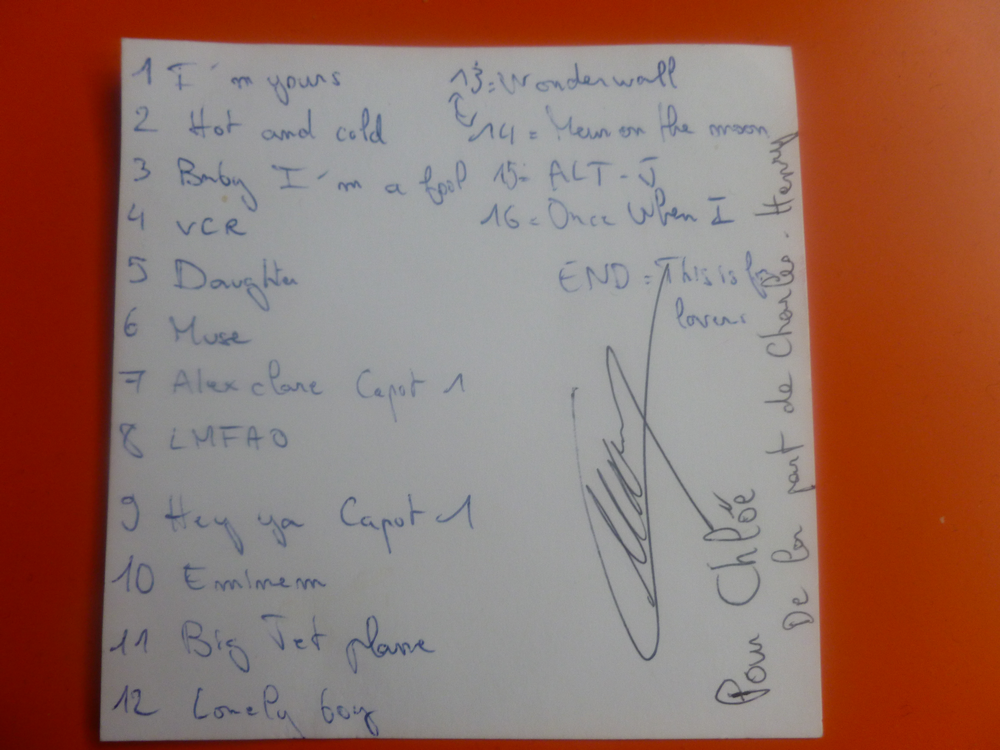 1 I'm yours
2 Hot and cold
3 Baby I'm a fool
4 VCR
5 Daughter
6 Muse
7 Alex clare Capot 1
8 LMFAO
9 Hey ya Capot 1
10 Eminem
11 Big Jet plane
12 Lonely boy
13 = Wonderwall
14 = Man on the moon
15 = ALT-J
16 = Once When I
END = This is for
lovers
Pour Chloé
De la part de Charles. Henry